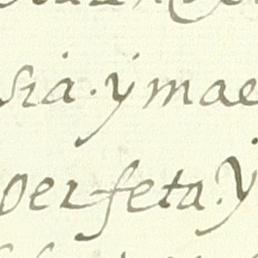 sia. ÿ mae
perfeta. Y